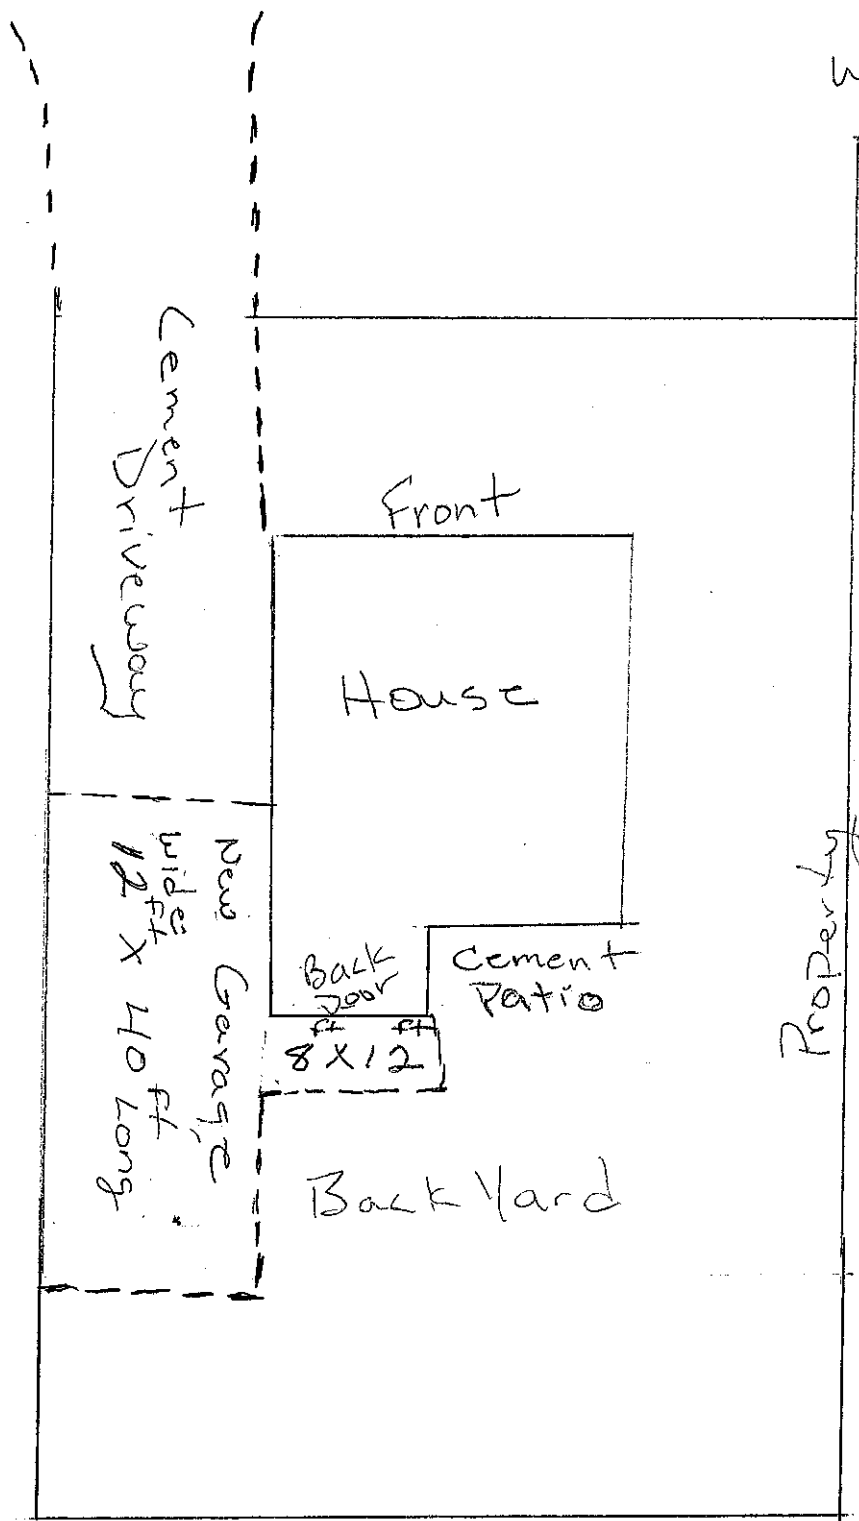 Cement
Driveway
Front
House
New Garage
wide
12 ft X 40 ft Long
Back
Door
Cement
Patio
ft ft
8 X 12
Back Yard
Property